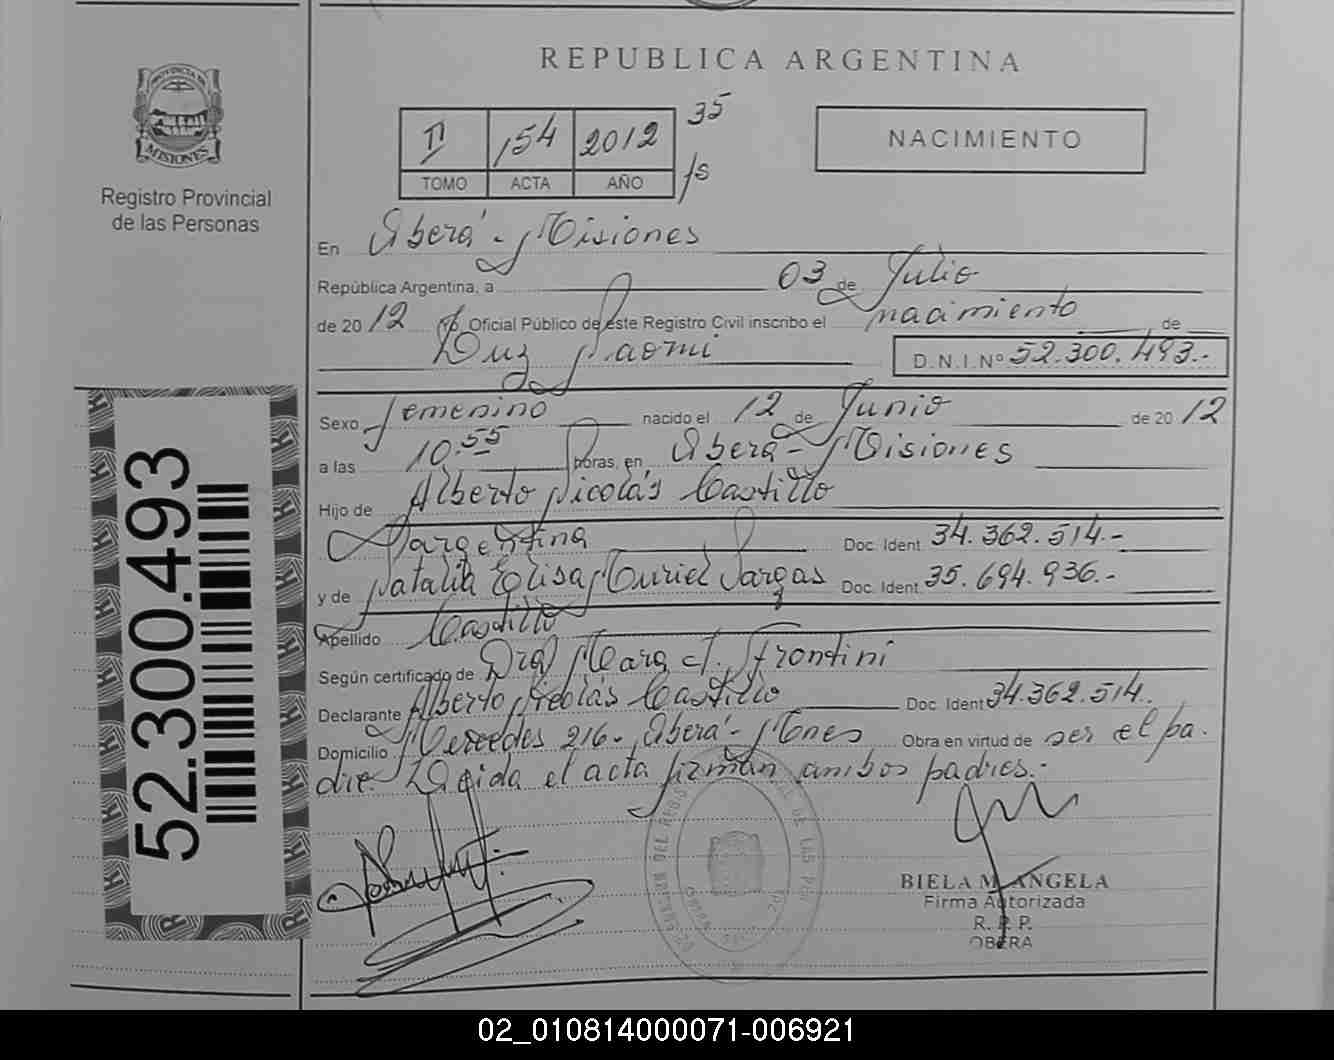 REPUBLICA ARGENTINA
PROVINCIA DE
MISIONES
Registro Provincial
de las Personas
II 154 2012 35
TOMO ACTA AÑO fs
NACIMIENTO
En Oberá - Misiones
República Argentina, a 03 de Julio
de 2012 Yo, Oficial Público de este Registro Civil inscribo el nacimiento de
Luz Naomi D.N.I. Nº 52.300.493.-
Sexo femenino nacido el 12 de Junio de 2012
a las 10.55 horas, en Oberá - Misiones
Hijo de Alberto Nicolás Castillo
argentina Doc. Ident 34.362.514.-
y de Natalia Elisa Muriel Vargas Doc. Ident. 35.694.936.-
Apellido Castillo
Según certificado de Dra Mara J. Frontini
Declarante Alberto Nicolás Castillo Doc. Ident 34.362.514.
Domicilio Mercedes 216 - Oberá - Mnes Obra en virtud de ser el pa.
dre. Leída el acta firman ambos padres.-
BIELA M. ANGELA
Firma Autorizada
R. P. P.
OBERA
52.300.493
02_010814000071-006921